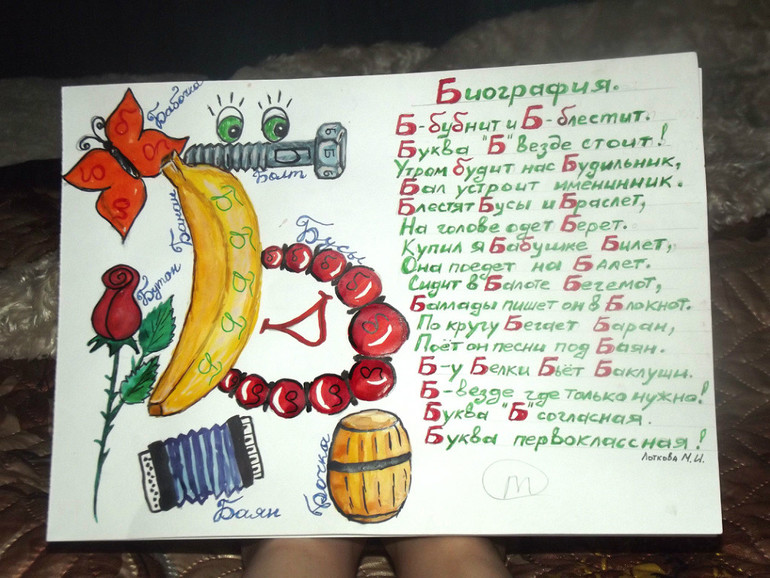 Бабочка
Болт
Банан
Бусы
Бутон
Баян
Бочка
Биография.
Б-бубнит и Б-блестит.
Буква "Б" везде стоит!
Утром будит нас Будильник,
Бал устроит именинник.
Блестят Бусы и Браслет,
На голове одет Берет.
Купил я Бабушке Билет,
Она поедет на Балет.
Сидит в Балоте Бегемот,
Баллады пишет он в Блокнот.
По кругу Бегает Баран,
Поёт он песни под Баян.
Б-у Белки Бьёт Баклуши.
Б-везде где только нужно!
Буква "Б" согласная.
Буква первоклассная!
Лоткова М.И.
m